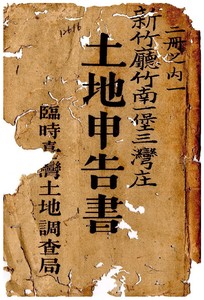 二冊ノ内一
新竹廳竹南一堡三灣庄
土地申告書
臨時臺灣土地調查局
12616